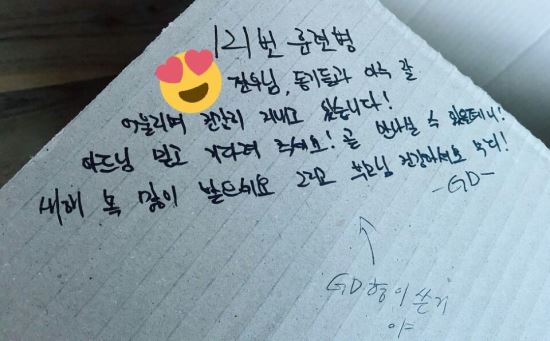 121번 훈련병
전우님, 동기들과 아주 잘
어울리며 건강히 지내고 있습니다!
아드님 믿고 기다려 주세요! 곧 만나실 수 있을테니!
새해 복 많이 받으세요 그리고 부모님 건강하세요 뚝디!
-GD-
GD형이 쓴거
야